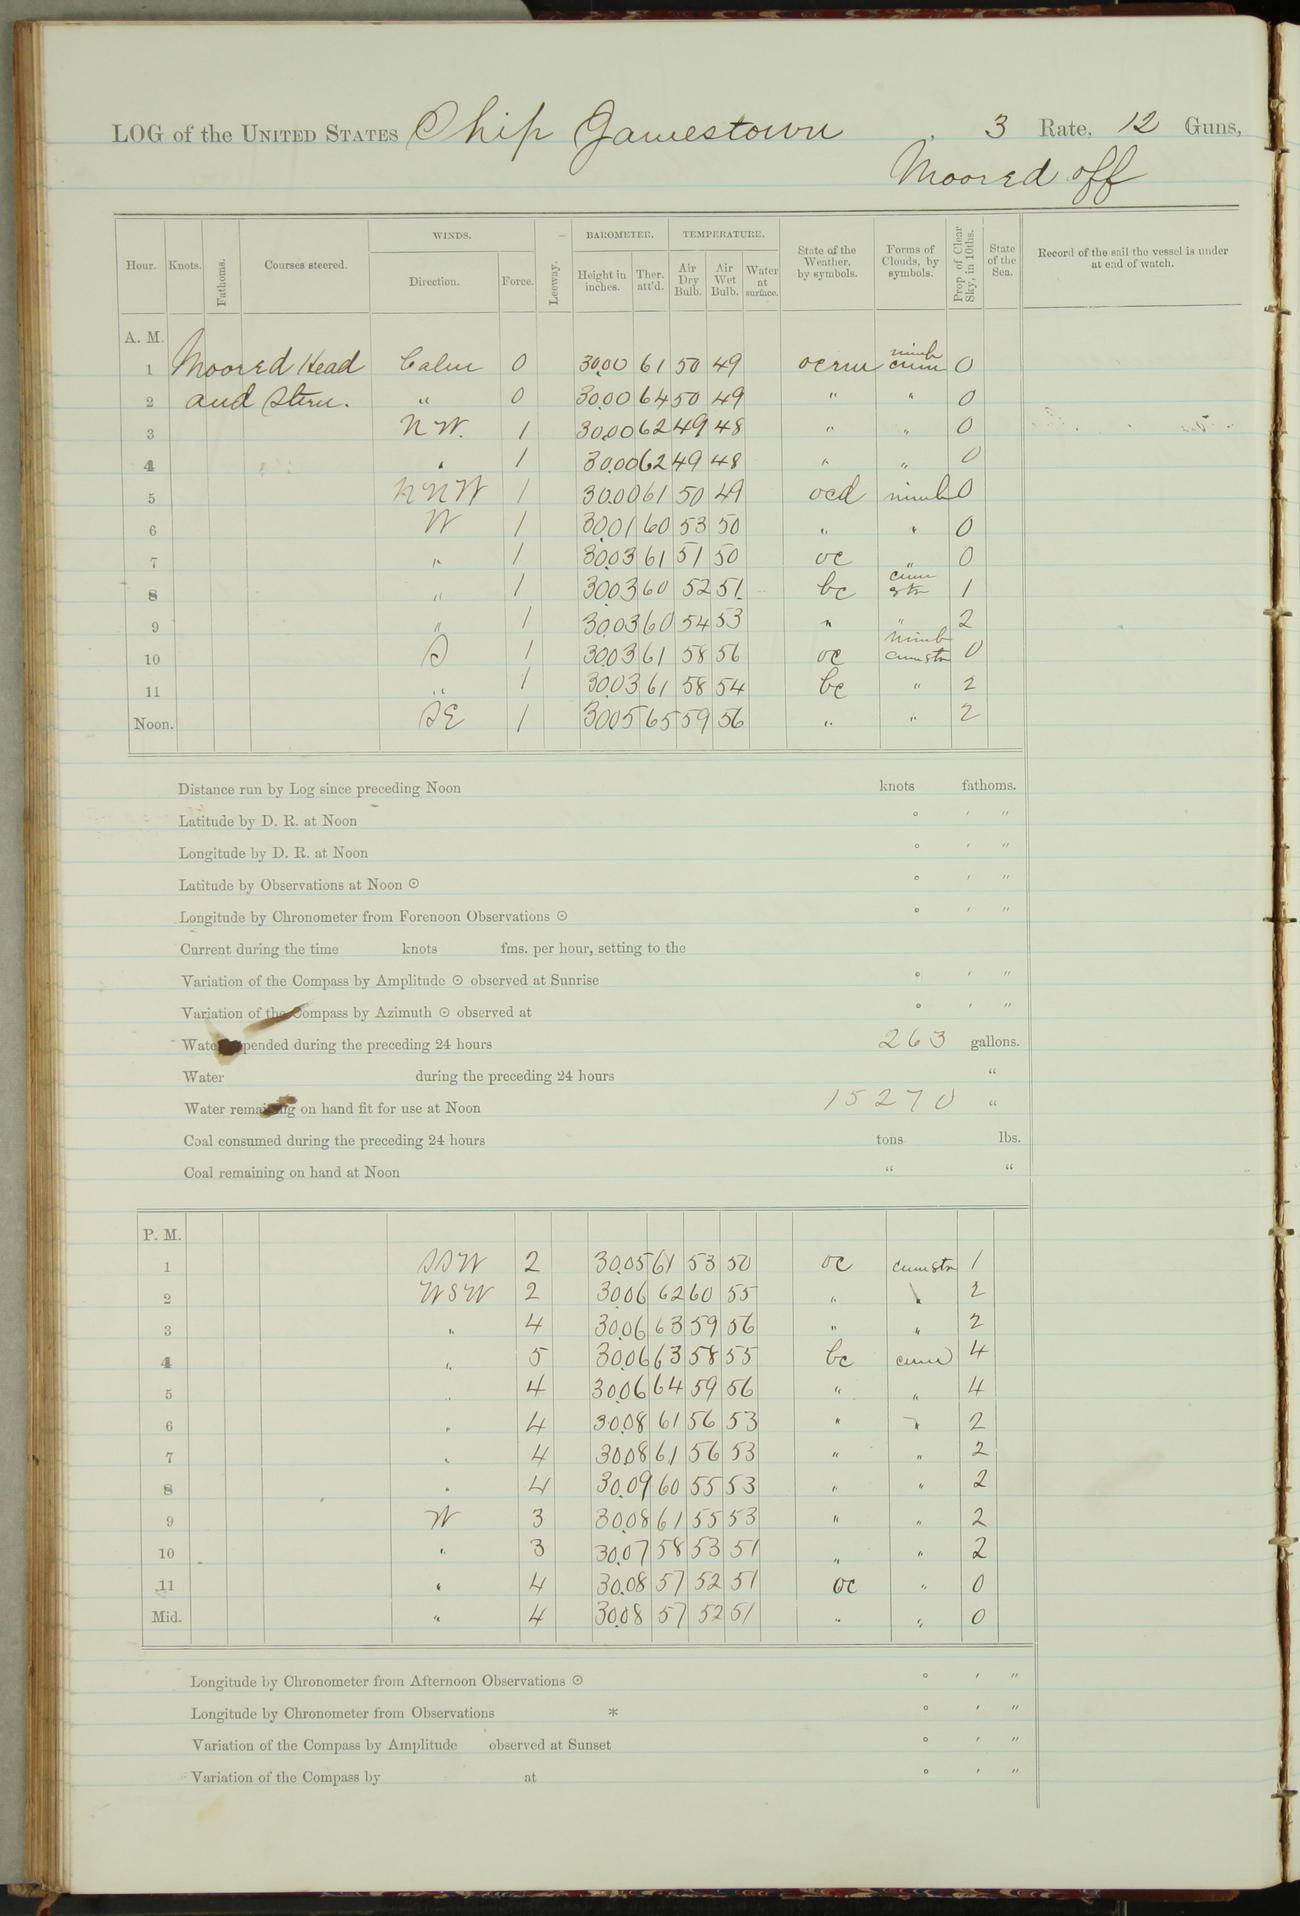 LOG of the UNITED STATES Ship Jamestown, 3 Rate, 12 Guns,
Moored off
Hour. Knots. Fathoms. Courses steered. WINDS. Direction. Force. Leeway. BAROMETER. Height in inches. Ther. att'd. TEMPERATURE. Air Dry Bulb. Air Wet Bulb. Water at surface. State of the Weather, by symbols. Forms of Clouds, by symbols. Prop. of Clear Sky, in 10ths. State of the Sea. Record of the sail the vessel is under at end of watch.
A. M.
1 Moored Head Calm 0 30.00 61 50 49 ocrm nimb cum 0
2 and Stern. " 0 30.00 64 50 49 " " 0
3 NW. 1 30.00 62 49 48 " " 0
4 " 1 30.00 62 49 48 " " 0
5 NNW 1 30.00 61 50 49 ocd nimb 0
6 W 1 30.01 60 53 50 " " 0
7 " 1 30.03 61 51 50 oc " 0
8 " 1 30.03 60 52 51 bc cum str 1
9 " 1 30.03 60 54 53 " " 2
10 S 1 30.03 61 58 56 oc nimb cum str 0
11 " 1 30.03 61 58 54 bc " 2
Noon. SE 1 30.05 65 59 56 " " 2
Distance run by Log since preceding Noon knots fathoms.
Latitude by D. R. at Noon ° ′ ″
Longitude by D. R. at Noon ° ′ ″
Latitude by Observations at Noon ☉ ° ′ ″
Longitude by Chronometer from Forenoon Observations ☉ ° ′ ″
Current during the time knots fms. per hour, setting to the
Variation of the Compass by Amplitude ☉ observed at Sunrise ° ′ ″
Variation of the Compass by Azimuth ☉ observed at ° ′ ″
Water expended during the preceding 24 hours 263 gallons.
Water during the preceding 24 hours "
Water remaining on hand fit for use at Noon 15270 "
Coal consumed during the preceding 24 hours tons lbs.
Coal remaining on hand at Noon " "
P. M.
1 SSW 2 30.05 61 53 50 oc cum str 1
2 WSW 2 30.06 62 60 55 " " 2
3 " 4 30.06 63 59 56 " " 2
4 " 5 30.06 63 58 55 bc cum 4
5 " 4 30.06 64 59 56 " " 4
6 " 4 30.08 61 56 53 " " 2
7 " 4 30.08 61 56 53 " " 2
8 " 4 30.09 60 55 53 " " 2
9 W 3 30.08 61 55 53 " " 2
10 " 3 30.07 58 53 51 " " 2
11 " 4 30.08 57 52 51 oc " 0
Mid. " 4 30.08 57 52 51 " " 0
Longitude by Chronometer from Afternoon Observations ☉ ° ′ ″
Longitude by Chronometer from Observations * ° ′ ″
Variation of the Compass by Amplitude observed at Sunset ° ′ ″
Variation of the Compass by at ° ′ ″